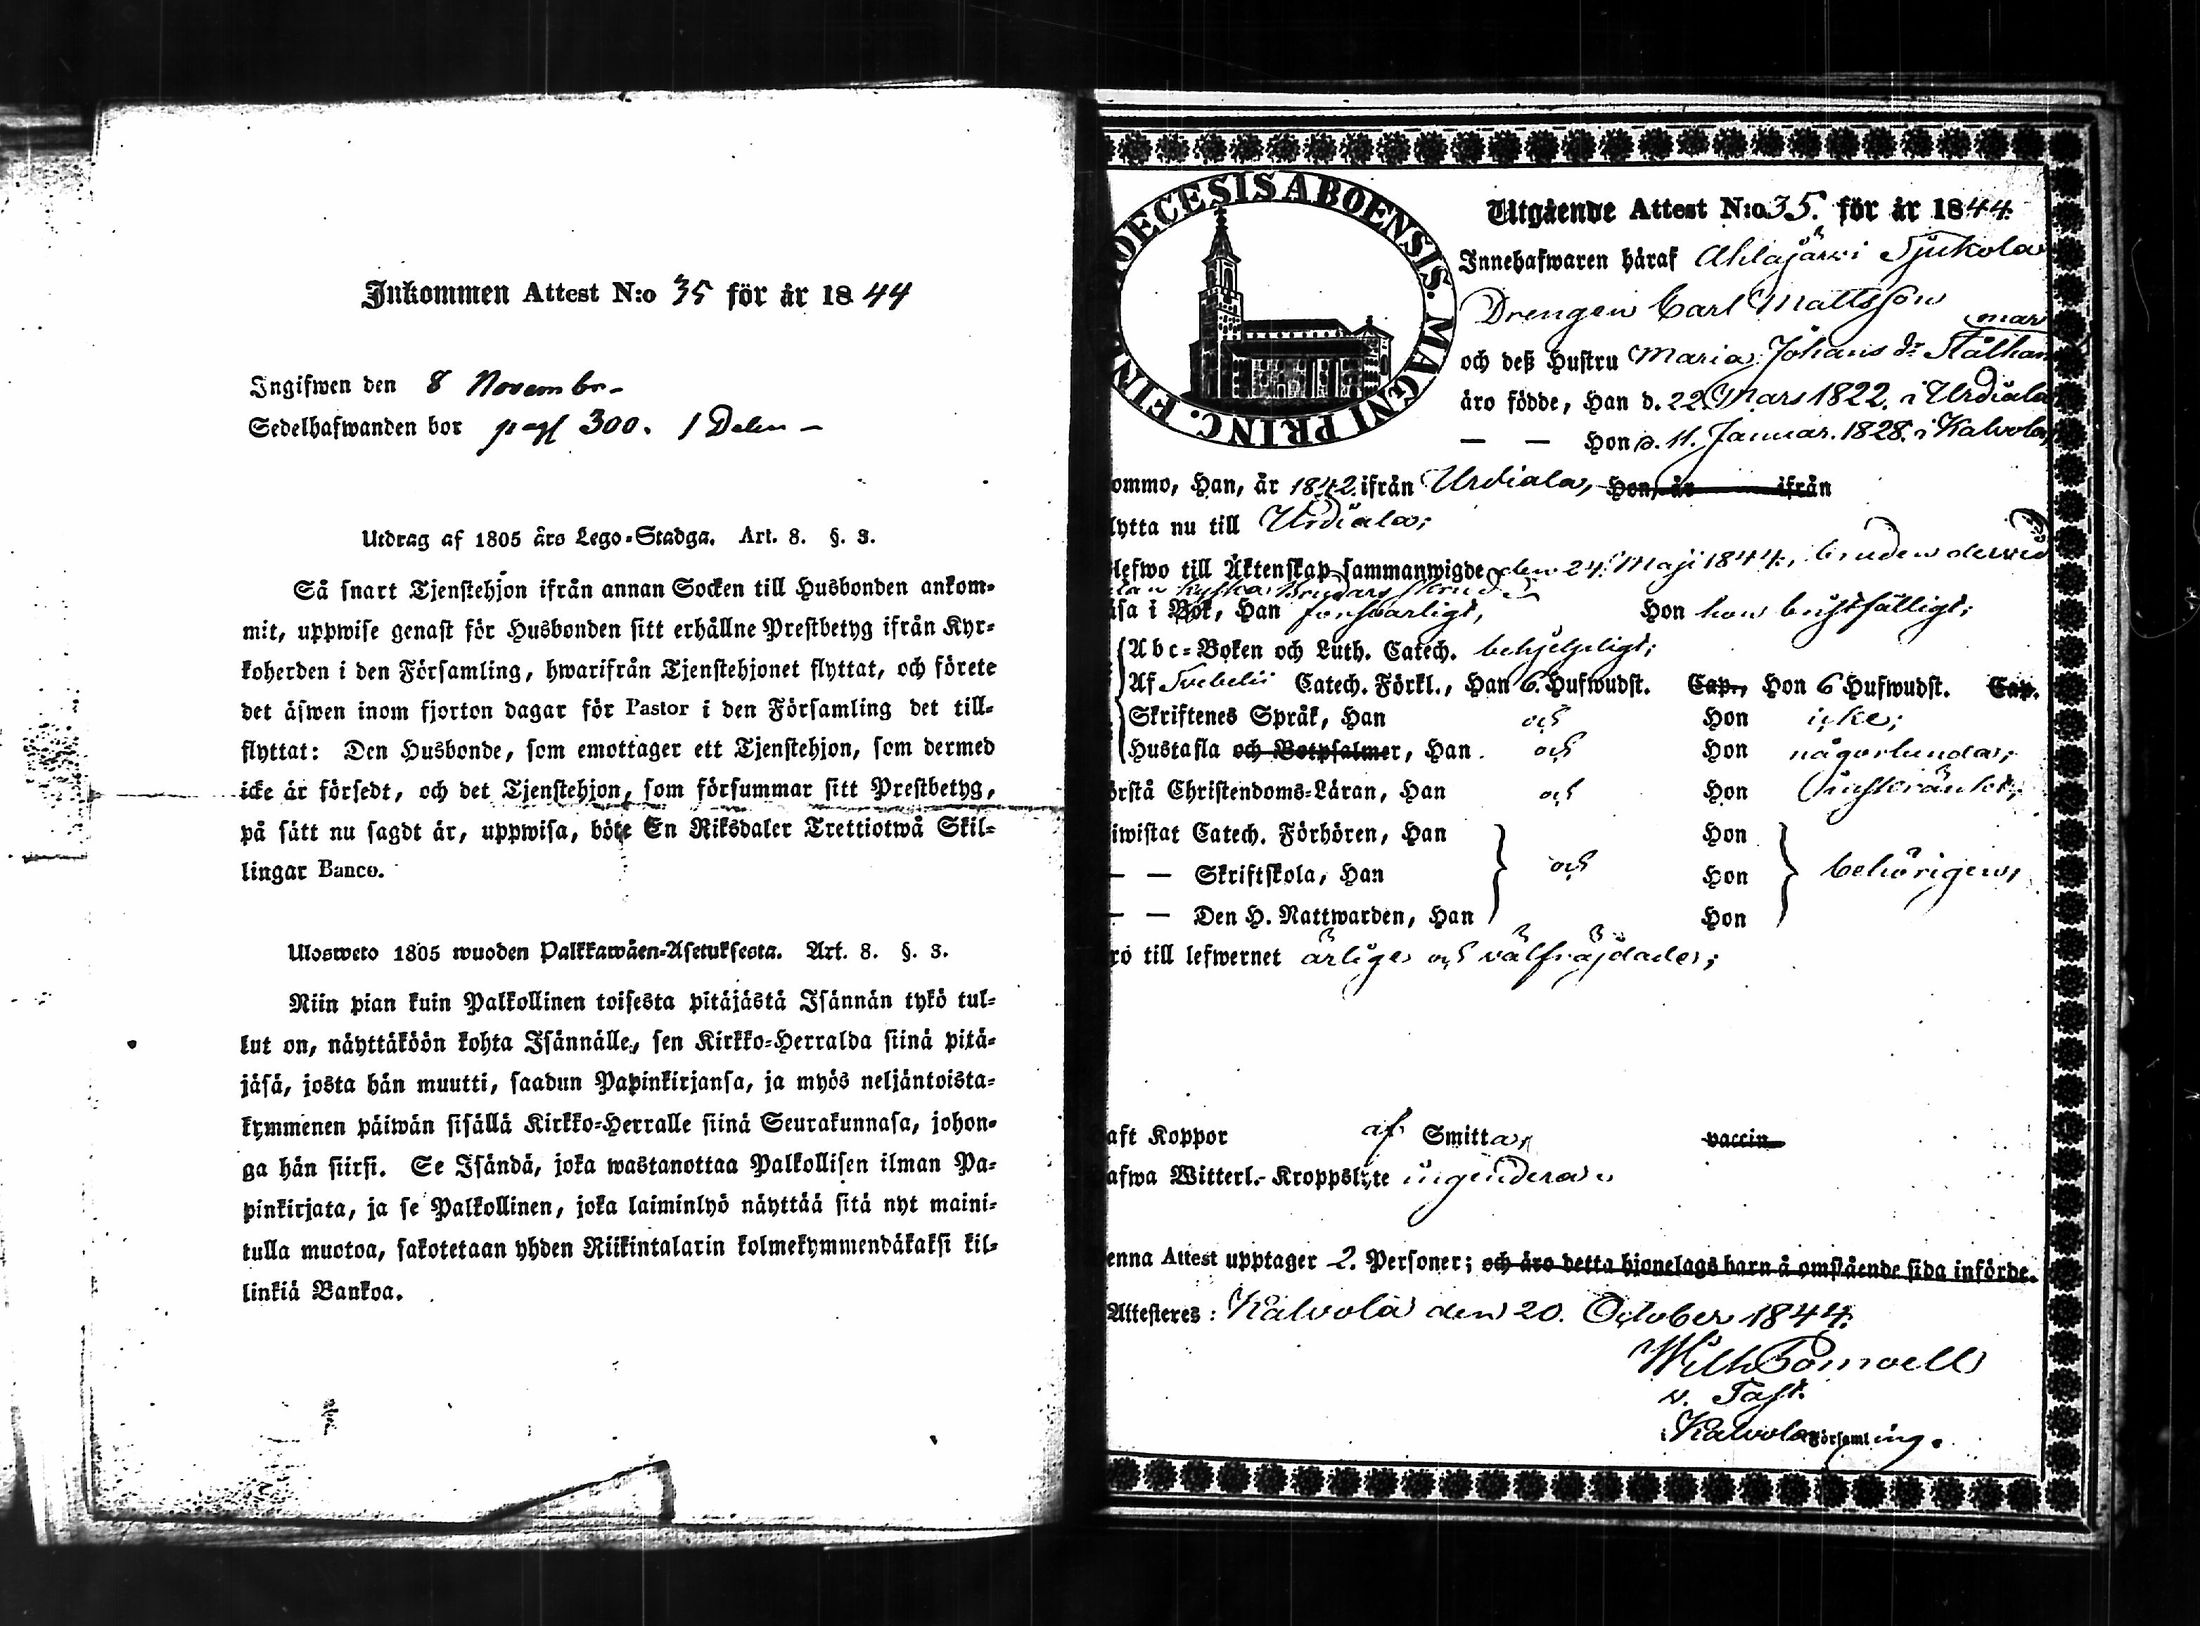 Inkommen Attest N:o 35 för år 1844
Ingifwen den 8 Novembr
Sedelhafwanden bor pag 300. 1 Delen
Utdrag af 1805 års Lego-Stadga. Art. 8. §. 3.
Så snart Tjenstehjon ifrån annan Socken till Husbonden ankom-
mit, uppwise genast för Husbonden sitt erhållne Prestbetyg ifrån Kyr-
koherden i den Församling, hwarifrån Tjenstehjonet flyttat, och förete
det äfwen inom fjorton dagar för Pastor i den Församling det till-
flyttat: Den Husbonde, som emottager ett Tjenstehjon, som dermed
icke är försedt, och det Tjenstehjon, som försummar sitt Prestbetyg,
på sätt nu sagdt är, uppwisa, böte En Riksdaler Trettiotwå Skil-
lingar Banco.
Ulosweto 1805 wuoden Palkkawäen-Asetuksesta. Art. 8. §. 3.
Niin pian kuin Palkollinen toisesta pitäjästä Isännän tykö tul-
lut on, näyttäköön kohta Isännälle, sen Kirkko-Herralda siinä pitä-
jäsä, josta hän muutti, saadun Papinkirjansa, ja myös neljäntoista-
kymmenen päiwän sisällä Kirkko-Herralle siinä Seurakunnasa, johon-
ga hän siirsi. Se Isändä, joka wastanottaa Palkollisen ilman Pa-
pinkirjata, ja se Palkollinen, joka laiminlyö näyttää sitä nyt maini-
tulla muotoa, sakotetaan yhden Riikintalarin kolmekymmendäkaksi kil-
linkiä Bankoa.
DIOECESIS ABOENSIS. MAGNI PRINC. FIN
Utgående Attest N:o 35. för år 1844.
Innehafwaren häraf Ahlajärvi Sjukola
Drengen Carl Mattsson
och deß Hustru Maria Johans dr Stålham
mar
äro födde, Han d. 22 Mars 1822. i Urdiala
— — Hon d. 11. Januar. 1828. i Kalvola,
ommo, Han, år 1842 ifrån Urdiala, Hon, år ifrån
lytta nu till Urdiala;
lefwo till Äktenskap sammanwigde den 24. Maji 1844., bruden derwid
äsa i Bok, Han försvarligt, Hon hon bristfälligt;
Abc-Boken och Luth. Catech. behjelpeligt;
Af Svebelii Catech. Förkl., Han 6. Hufwudst. Cap., Hon 6 Hufwudst. Cap.
Skriftenes Språk, Han och Hon icke;
Hustafla och Botpsalmer, Han och Hon någorlunda;
örstå Christendoms-Läran, Han och Hon inskränkt;
iwistat Catech. Förhören, Han Hon
— — Skriftskola, Han och Hon behörigen,
— — Den H. Nattwarden, Han Hon
ro till lefwernet ärlige och välfräjdade;
aft Koppor af Smitta, vaccin
afwa Witterl.- Kroppslyte ingendera
enna Attest upptager 2. Personer; och äro detta hjonelags barn å omstående sida införde.
Attesteres: Kalvola den 20. October 1844.
Wilh Pomoell
v. Past.
i Kalvola Församling.